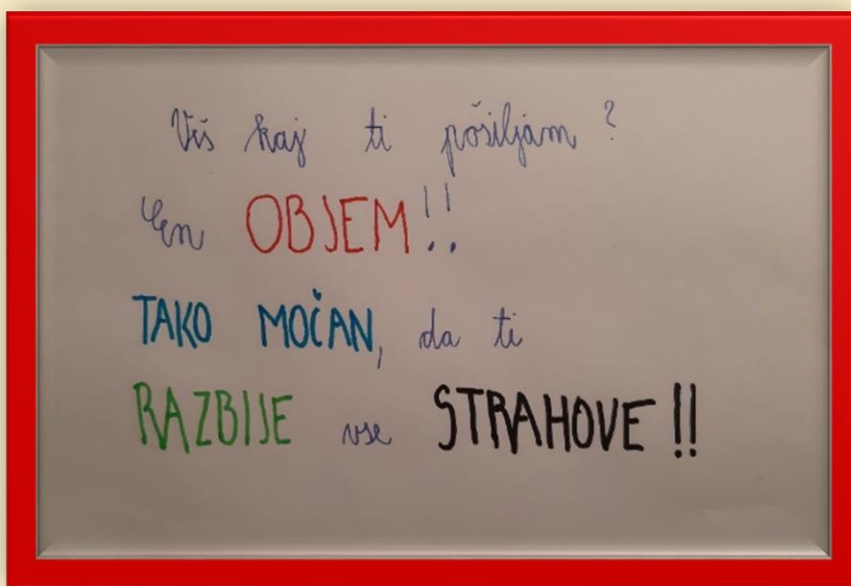 Viš kaj ti pošiljam?
En OBJEM!!
TAKO MOČAN, da ti
RAZBIJE vse STRAHOVE!!